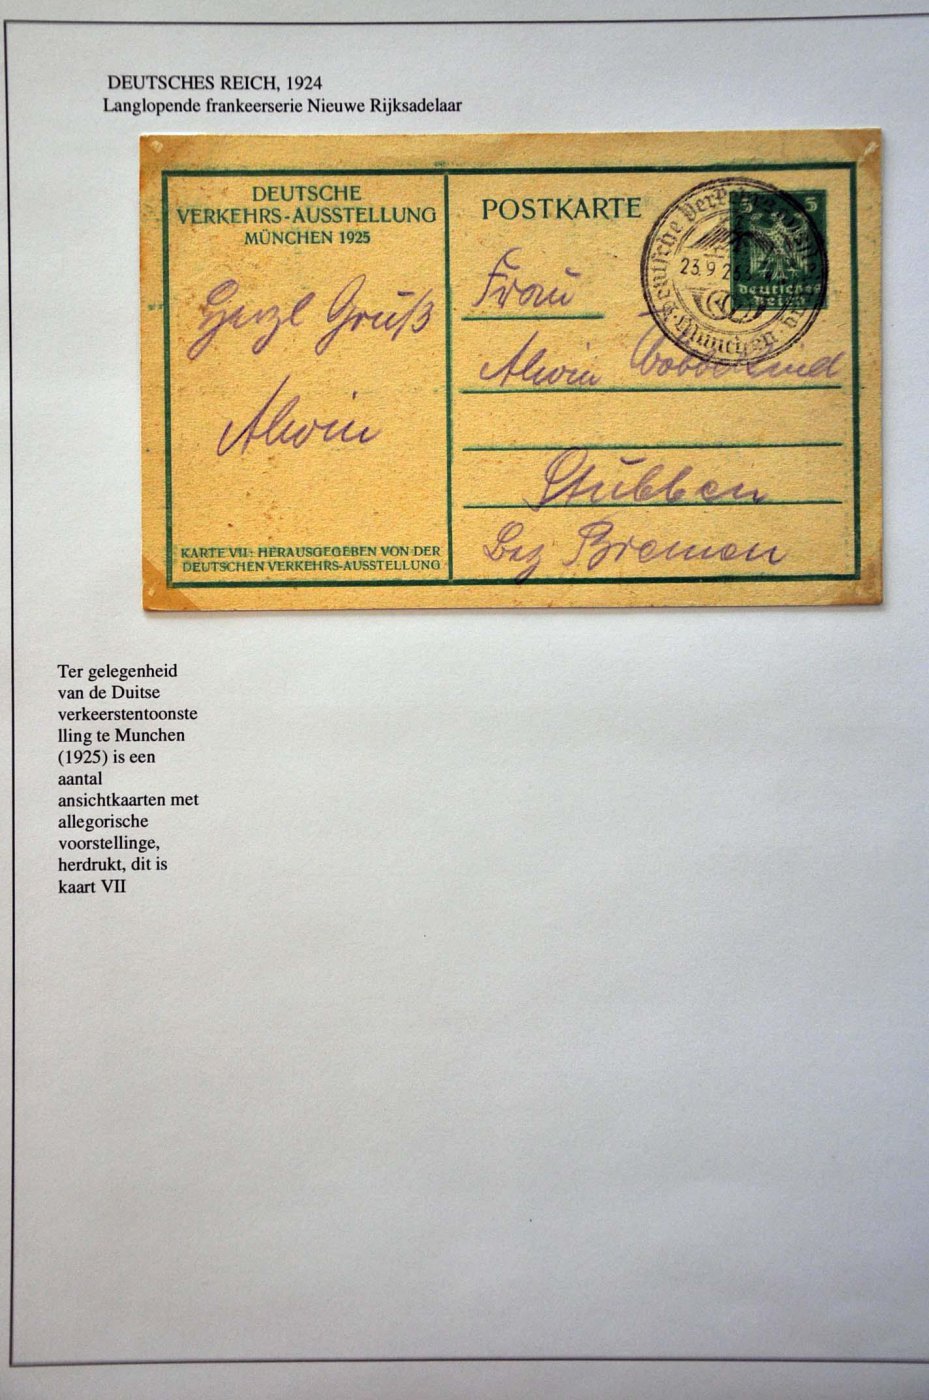 DEUTSCHES REICH, 1924
Langlopende frankeerserie Nieuwe Rijksadelaar
DEUTSCHE
VERKEHRS-AUSSTELLUNG
MÜNCHEN 1925
Herzl Gruß
Alwin
KARTE VII: HERAUSGEGEBEN VON DER
DEUTSCHEN VERKEHRS-AUSSTELLUNG
POSTKARTE
5 5
Deutsches
Reich
Deutsche Verkehrsausstellung
23.9.25
München
Frau
Alwin
Stubben
Bez Bremen
Ter gelegenheid
van de Duitse
verkeerstentoonste
lling te Munchen
(1925) is een
aantal
ansichtkaarten met
allegorische
voorstellinge,
herdrukt, dit is
kaart VII